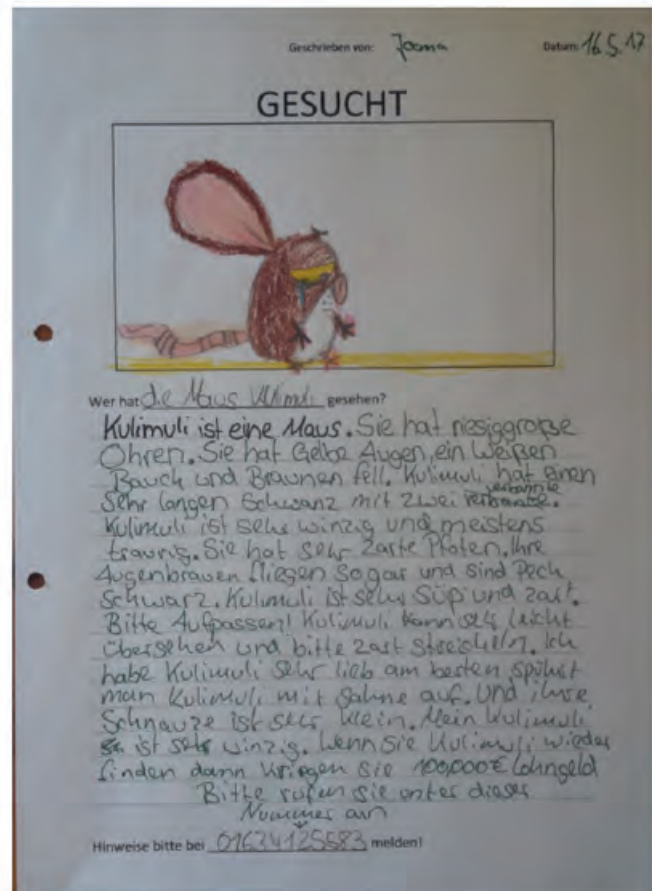 Geschrieben von: Jooma Datum: 16.5.17
GESUCHT
Wer hat die Maus Kulimuli gesehen?
Kulimuli ist eine Maus. Sie hat riesiggroße
Ohren. Sie hat Gelbe Augen, ein Weißen
Bauch und Braunen fell. Kulimuli hat einen
sehr langen Schwanz mit zwei verbannte.
Kulimuli ist sehr winzig und meistens
traurig. Sie hat sehr zarte Pfoten. Ihre
Augenbrauen fliegen sogar und sind Pech
Schwarz. Kulimuli ist sehr Süß und zart.
Bitte Aufpassen! Kulimuli kann sehr leicht
übersehen und bitte zart streicheln. Ich
habe Kulimuli sehr lieb am besten spührt
man Kulimuli mit Sahne auf. Und ihre
Schnauze ist sehr klein. Mein Kulimuli
ist sehr winzig. Wenn Sie Kulimuli wieder
finden dann kriegen Sie 100,000€ Lohngeld
Bitte rufen sie unter dieser
Nummer an
Hinweise bitte bei 01634125583 melden!